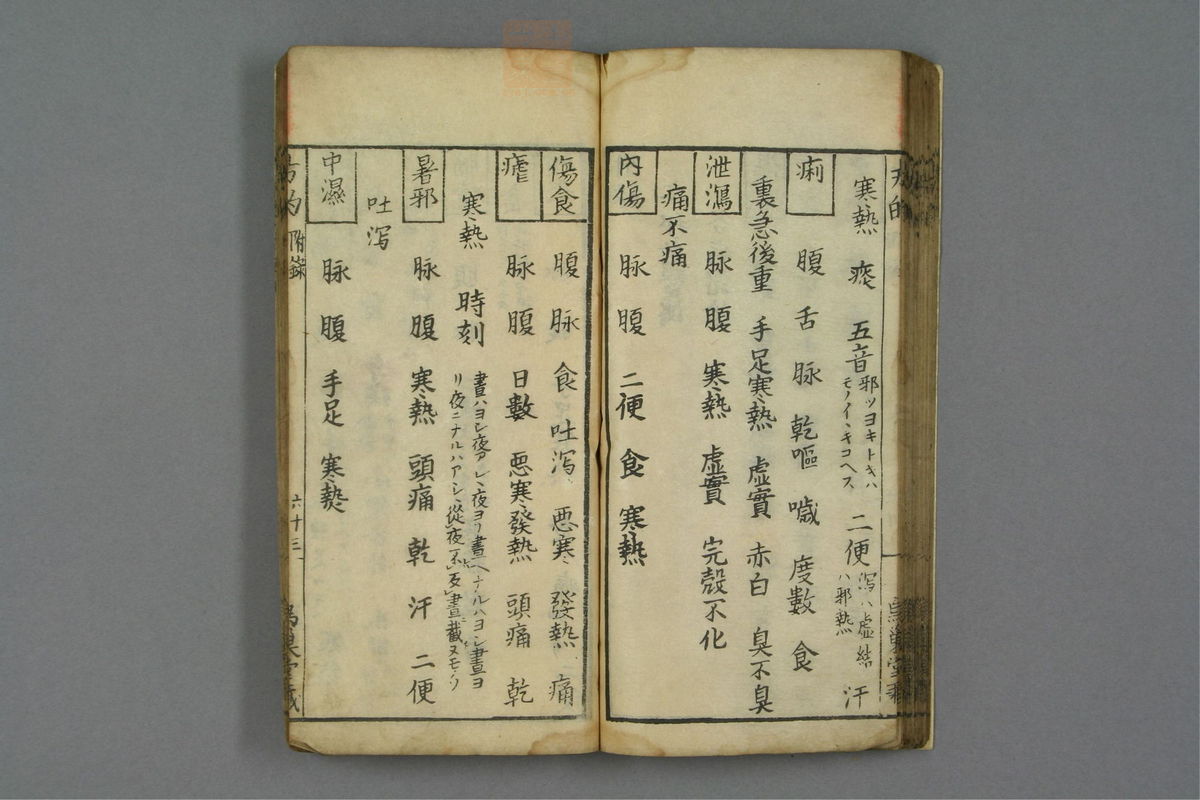 寒熱 痰 五音 邪ツヨキトキハモノイヽキコヘス 二便 瀉ハ虚結ハ邪熱 汗
痢 腹 舌 脉 乾嘔 噦 度數 食
裏急後重 手足寒熱 虚實 赤白 臭不臭
泄瀉 脉 腹 寒熱 虚實 完穀不化
痛不痛
内傷 脉 腹 二便 食 寒熱
傷食 腹 脉 食 吐瀉 悪寒 發熱 痛
瘧 脉 腹 日數 悪寒發熱 頭痛 乾
寒熱 時刻 晝ハヨシ夜アシ夜ヨリ晝ヘナルハヨシ晝ヨリ夜ニナルハアシ
暑邪 脉 腹 寒熱 頭痛 乾 汗 二便
吐瀉
中濕 脉 腹 手足 寒熱
附錄 六十三